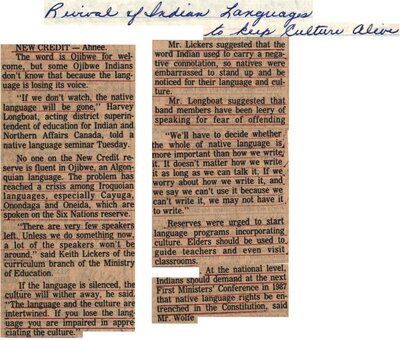 Revival of Indian Languages
to keep Culture Alive
NEW CREDIT — Ahnee.
The word is Ojibwe for wel-
come, but some Ojibwe Indians
don't know that because the lang-
uage is losing its voice.
"If we don't watch, the native
language will be gone," Harvey
Longboat, acting district superin-
tendent of education for Indian and
Northern Affairs Canada, told a
native language seminar Tuesday.
No one on the New Credit re-
serve is fluent in Ojibwe, an Algon-
quian language. The problem has
reached a crisis among Iroquoian
languages, especially Cayuga,
Onondaga and Oneida, which are
spoken on the Six Nations reserve.
"There are very few speakers
left. Unless we do something now,
a lot of the speakers won't be
around," said Keith Lickers of the
curriculum branch of the Ministry
of Education.
If the language is silenced, the
culture will wither away, he said.
"The language and the culture are
intertwined. If you lose the lang-
uage you are impaired in appre-
ciating the culture."
Mr. Lickers suggested that the
word Indian used to carry a neg-
ative connotation, so natives were
embarrassed to stand up and be
noticed for their language and cul-
ture.
Mr. Longboat suggested that
band members have been leery of
speaking for fear of offending
"We'll have to decide whether
the whole of native language is
more important than how we write
it. It doesn't matter how we write
it as long as we can talk it. If we
worry about how we write it, and
we say we can't use it because we
can't write it, we may not have it
to write."
Reserves were urged to start
language programs incorporating
culture. Elders should be used to
guide teachers and even visit
classrooms.
At the national level,
Indians should demand at the next
First Ministers' Conference in 1987
that native language rights be en-
trenched in the Constitution, said
Mr. Wolfe